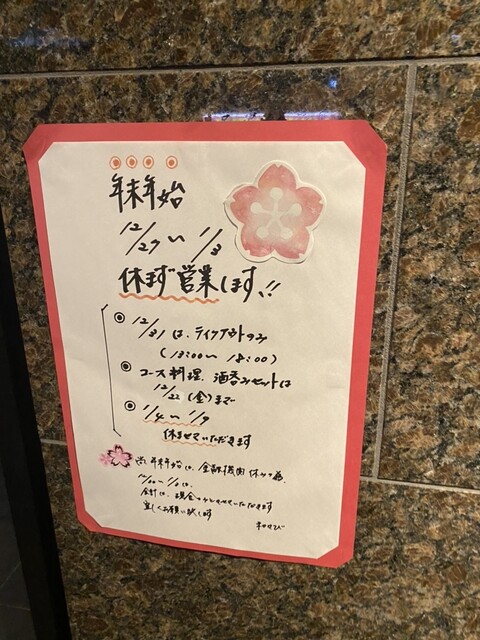 年末年始
12/27〜1/3
休まず営業します!!
◎ 12/31は、テイクアウトのみ
(13:00〜18:00)
◎ コース料理、酒呑みセットは
12/22(金)まで
◎ 1/4〜1/9
休ませていただきます
尚、年末年始は、金融機関休みの為、
会計は、現金のみとさせていただきます
宜しくお願い致します